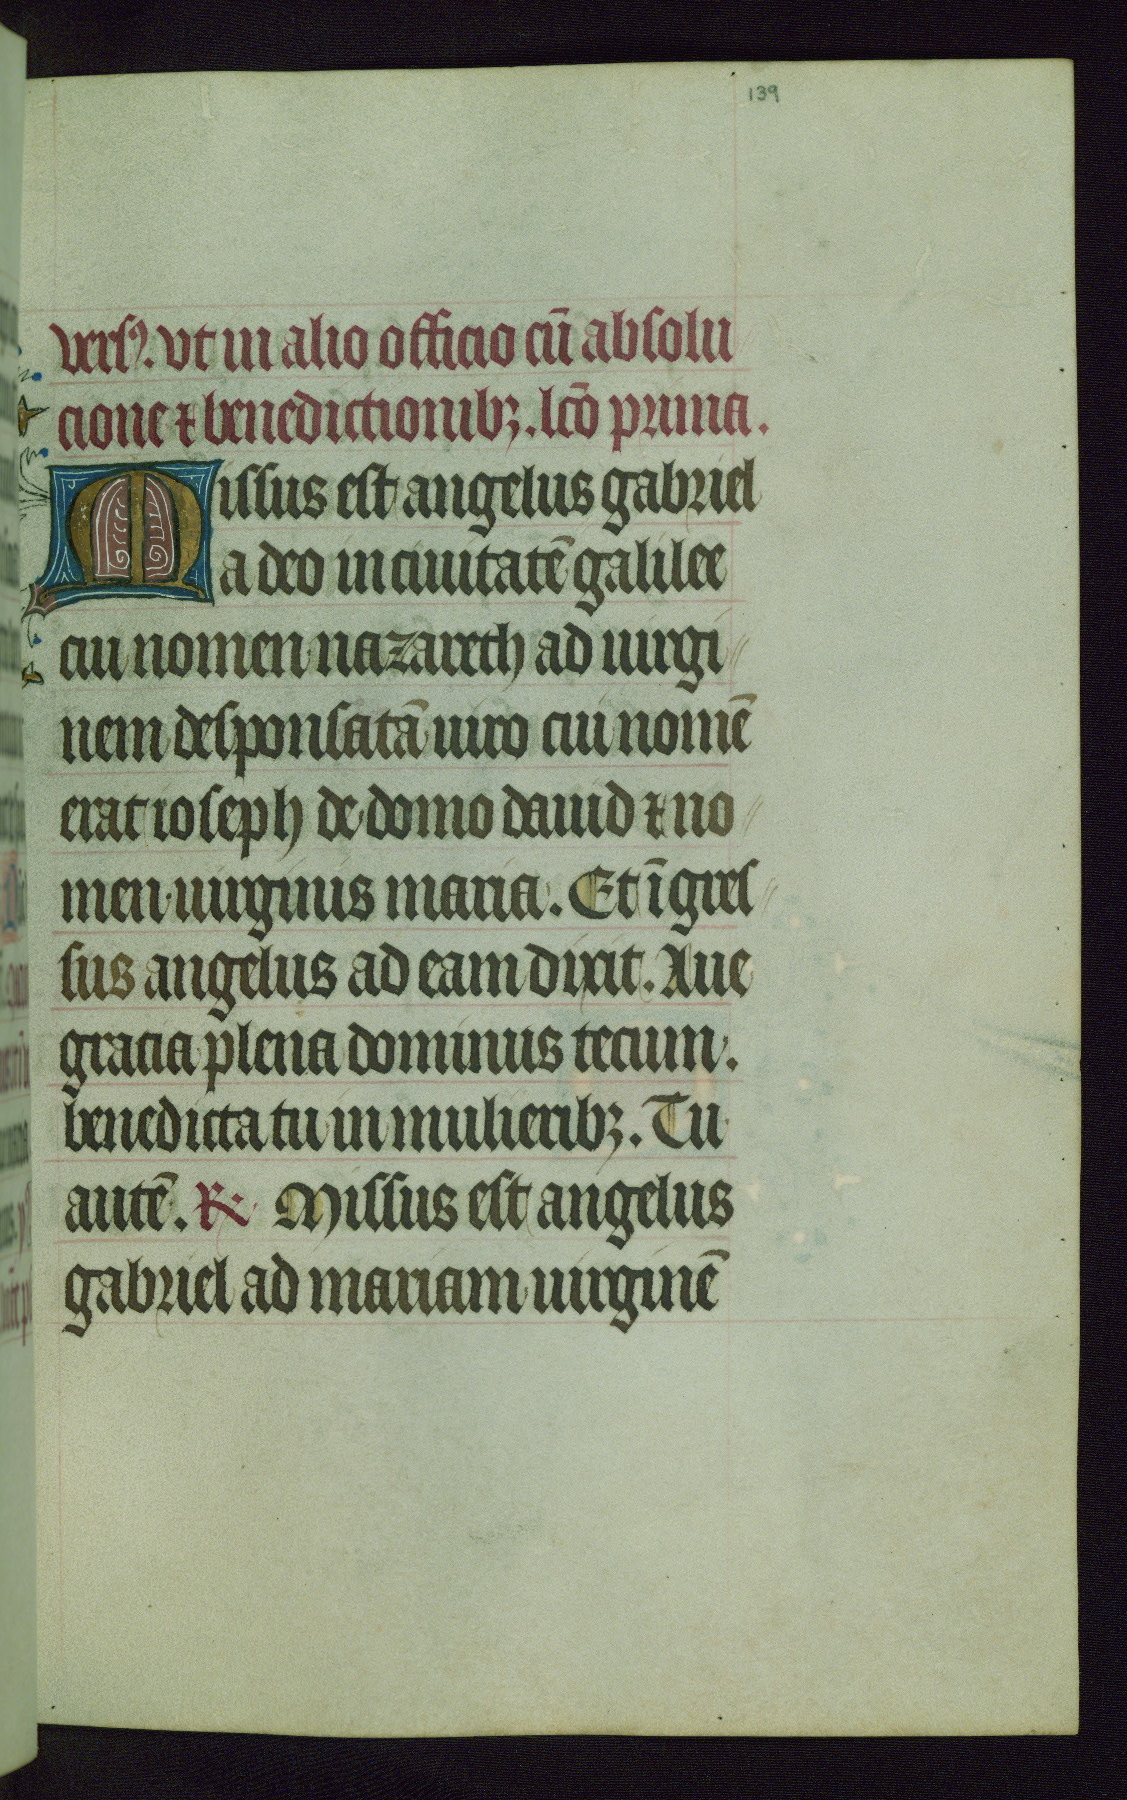 139
versꝰ. vt in alio officio cū absolu
cione ⁊ benedictionibꝫ. lcō prima.
Missus est angelus gabriel
a deo in ciuitatē galilee
cui nomen nazareth ad uirgi
nem desponsatā uiro cui nomē
erat ioseph de domo dauid ⁊ no
men uirginis maria. Et īgres
sus angelus ad eam dixit. Aue
gracia plena dominus tecum.
benedicta tu in mulieribꝫ. Tu
autē. ℟. Missus est angelus
gabriel ad mariam uirginē